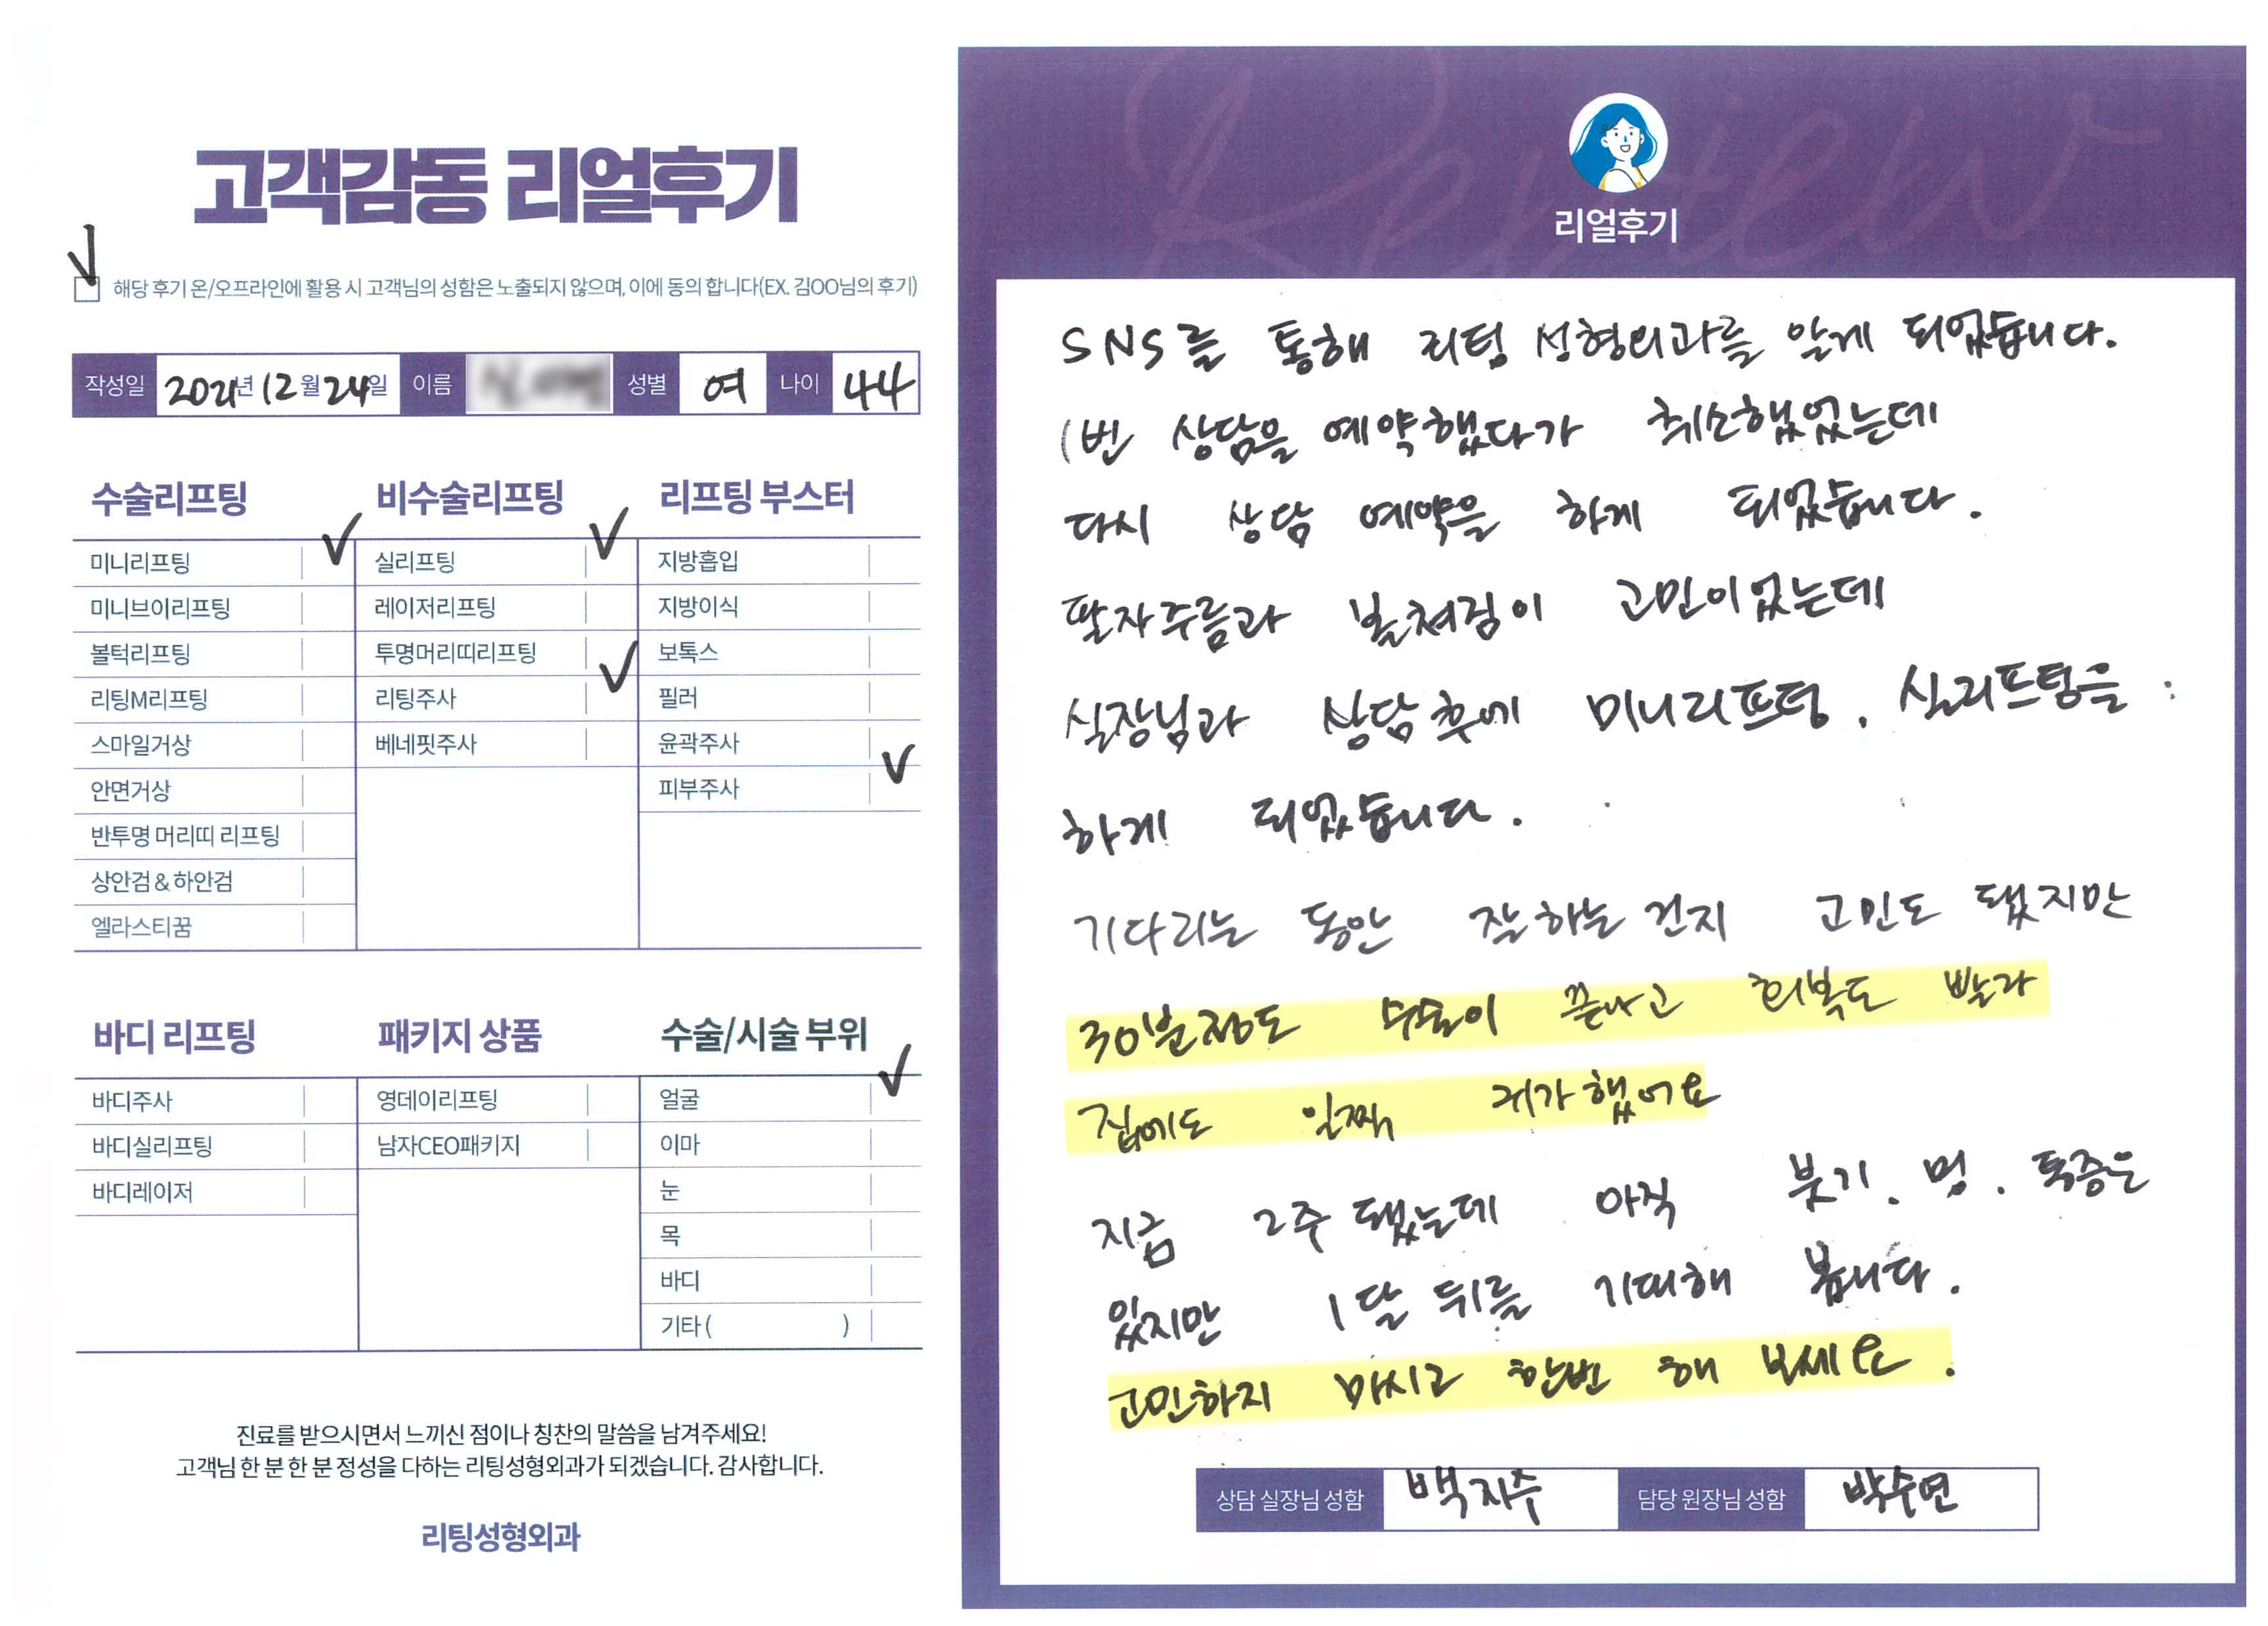 고객감동 리얼후기
해당 후기 온/오프라인에 활용 시 고객님의 성함은 노출되지 않으며, 이에 동의 합니다(EX. 김OO님의 후기)
작성일 2021년 12월 24일 이름 성별 여 나이 44
수술리프팅
미니리프팅
미니브이리프팅
볼턱리프팅
리팅M리프팅
스마일거상
안면거상
반투명 머리띠 리프팅
상안검 & 하안검
엘라스티꿈
비수술리프팅
실리프팅
레이저리프팅
투명머리띠리프팅
리팅주사
베네핏주사
리프팅 부스터
지방흡입
지방이식
보톡스
필러
윤곽주사
피부주사
바디 리프팅
바디주사
바디실리프팅
바디레이저
패키지 상품
영데이리프팅
남자CEO패키지
수술/시술 부위
얼굴
이마
눈
목
바디
기타 ( )
진료를 받으시면서 느끼신 점이나 칭찬의 말씀을 남겨주세요!
고객님 한 분 한 분 정성을 다하는 리팅성형외과가 되겠습니다. 감사합니다.
리팅성형외과
Review
리얼후기
SNS를 통해 리팅 성형외과를 알게 되었습니다.
1번 상담을 예약했다가 취소했었는데
다시 상담 예약을 하게 되었습니다.
팔자주름과 볼쳐짐이 고민이었는데
실장님과 상담후에 미니리프팅, 실리프팅을
하게 되었습니다.
기다리는 동안 잘하는 건지 고민도 됐지만
30분정도 수술이 끝나고 회복도 빨라
집에도 일찍 귀가했어요
지금 2주 됐는데 아직 붓기, 멍, 통증은
있지만 1달 뒤를 기대해 봅니다.
고민하지 마시고 한번 해 보세요.
상담 실장님 성함 백지수 담당 원장님 성함 박수연